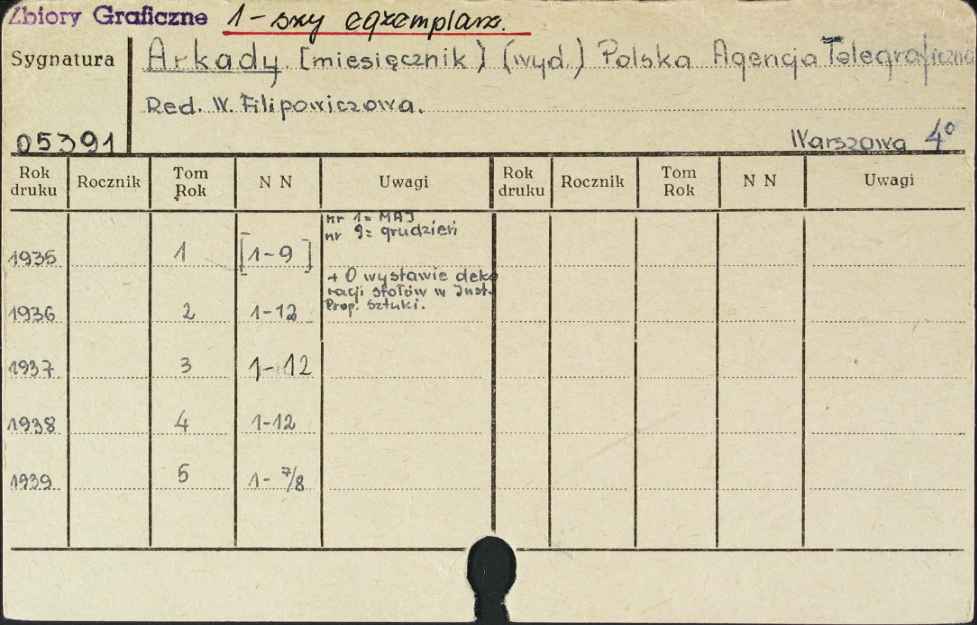 Zbiory Graficzne 1-szy egzemplarz.
Sygnatura Arkady [miesięcznik) (wyd.) Polska Agencja Telegraficzna
Red. W. Filipowiczowa.
05391 Warszawa 4°
Rok druku Rocznik Tom Rok N N Uwagi Rok druku Rocznik Tom Rok N N Uwagi
nr 1= MAJ
nr 9= grudzień
1935 1 [1-9]
+ O wystawie deko
racji stołów w Inst.
Prop. Sztuki.
1936 2 1-12
1937 3 1-12
1938 4 1-12
1939 5 1-7/8